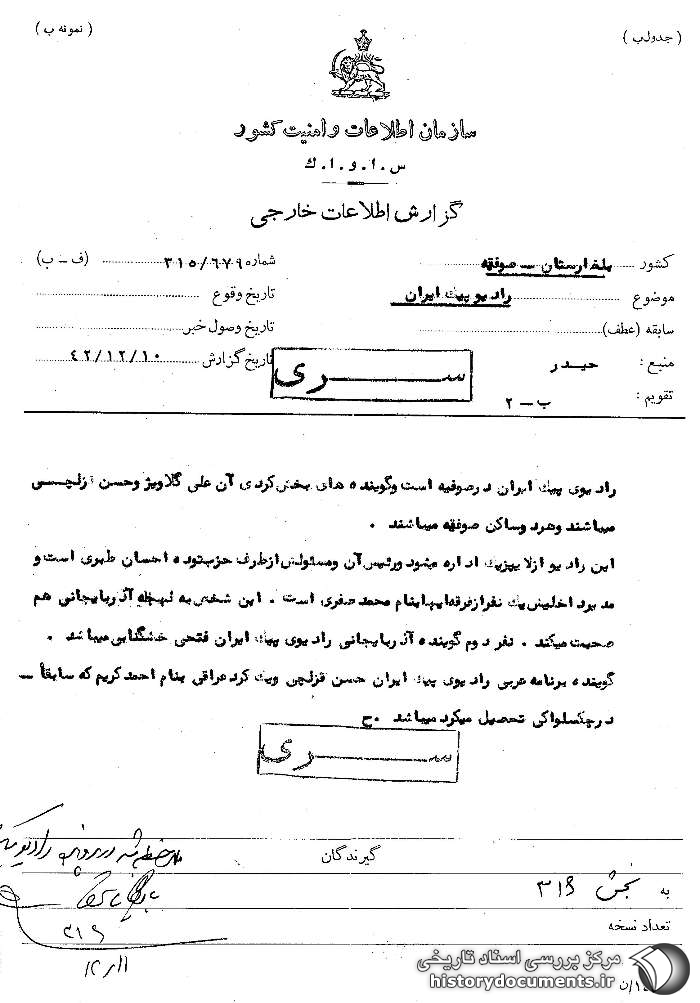 ( جدول ب )
( نمونه ب )
سازمان اطلاعات و امنیت کشور
س . ا . و . ا . ك
گزارش اطلاعات خارجی
کشور بلغارستان – صوفقه
شماره ۳۱۵/۶۷۹ (ف – ب)
موضوع رادیو پیك ایران
تاریخ وقوع
سابقه (عطف)
تاریخ وصول خبر
منبع : حیدر
تاریخ گزارش ۴۲/۱۲/۱۰
تقویم : ب – ۲
ســـری
رادیوی پیك ایران در صوفیه است و گوینده های بخش کردی آن علی گلاویژ و حسن قزلچسی
میباشند و هرد و ساکن صوفقه میباشند .
این رادیو از لایپزیك اداره میشود و رئیس آن ومسئولش از طرف حزبتوده احسان طبری است و
مدیر داخلیش یك نفر از فرقه ایها بنام محمد صفری است . این شخص به لهجه آذربایجانی هم
صحبت میکند . نفر دوم گوینده آذربایجانی رادیوی پیك ایران فتحی خشگنابی میباشد .
گوینده برنامه عربی رادیوی پیك ایران حسن قزلچی ویك کرد عراقی بنام احمد کریم که سابقاً –
درچکسلواکی تحصیل میکرد میباشد . ح
ســـری
گیرندگان
ملاحظه شد در پرونده رادیو پیک
به بخش ۳۱۶
بایگانی
تعداد نسخه
۳۱۶
۱۲/۱۱
مرکز بررسی اسناد تاریخی
historydocuments.ir